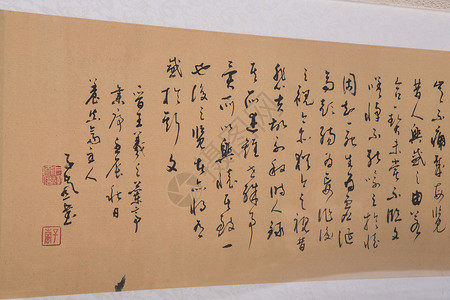 豈不痛哉每覽
昔人興感之由若
合一契未嘗不臨文
嗟悼不能喻之於懷
固知一死生為虛誕
齊彭殤為妄作後
之視今亦猶今之視昔
悲夫故列敘時人錄
其所述雖世殊事
異所以興懷其致一
也後之覽者亦將有
感於斯文
晉王羲之蘭亭
集序庚辰秋日
主人